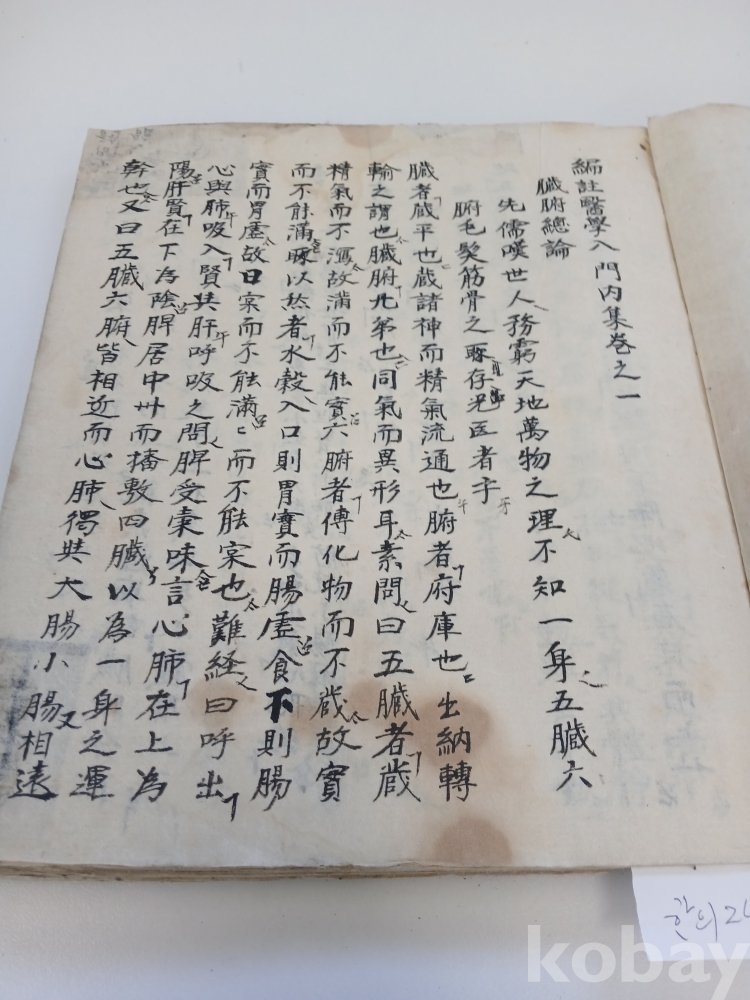 編註醫學入門內集卷之一
臟腑總論
先儒嘆世人務窮天地萬物之理不知一身五臟六
腑毛髮筋骨之所存况医者乎
臟者蔵平也蔵諸神而精氣流通也腑者府庫也出納轉
輸之謂也臟腑兄弟也同氣而異形耳素問曰五臟者蔵
精氣而不瀉故滿而不能實六腑者傳化物而不蔵故實
而不能滿所以然者水穀入口則胃實而腸虛食不則腸
實而胃虛故曰宲而不能滿〻而不能宲也難経曰呼出
心與肺吸入賢共肝呼吸之問脾受味言心肺在上為
陽肝賢在下為陰脾居中州而播敷四臟以為一身之運
幹也又曰五臟六腑皆相近而心肺獨共大腸小腸相遠
한의
kobay